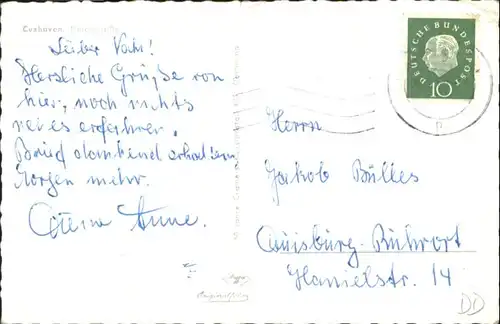 Cuxhaven,
Lieber Vati!
Herzliche Grüße von
hier, noch nichts
neues erfahren.
Brief dankend erhalten
Morgen mehr.
Anne.
DEUTSCHE BUNDESPOST
10
Herrn
Jakob Bülles
Duisburg-Ruhrort
Hanielstr. 14
DD